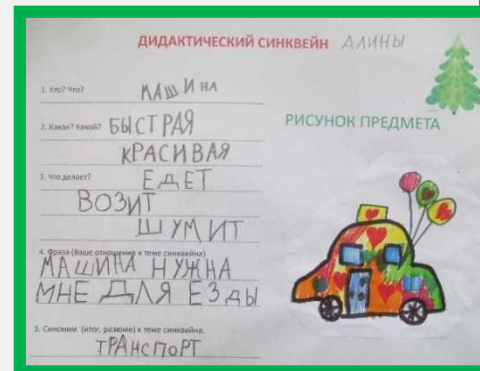 ДИДАКТИЧЕСКИЙ СИНКВЕЙН АЛИНЫ
1. Кто? Что? МАШИНА
2. Какая? Какой? БЫСТРАЯ
КРАСИВАЯ
3. Что делает? ЕДЕТ
ВОЗИТ
ШУМИТ
4. Фраза (Ваше отношение к теме синквейна)
МАШИНА НУЖНА
МНЕ ДЛЯ ЕЗДЫ
5. Синоним. (итог, резюме) к теме синквейна.
ТРАНСПОРТ
РИСУНОК ПРЕДМЕТА